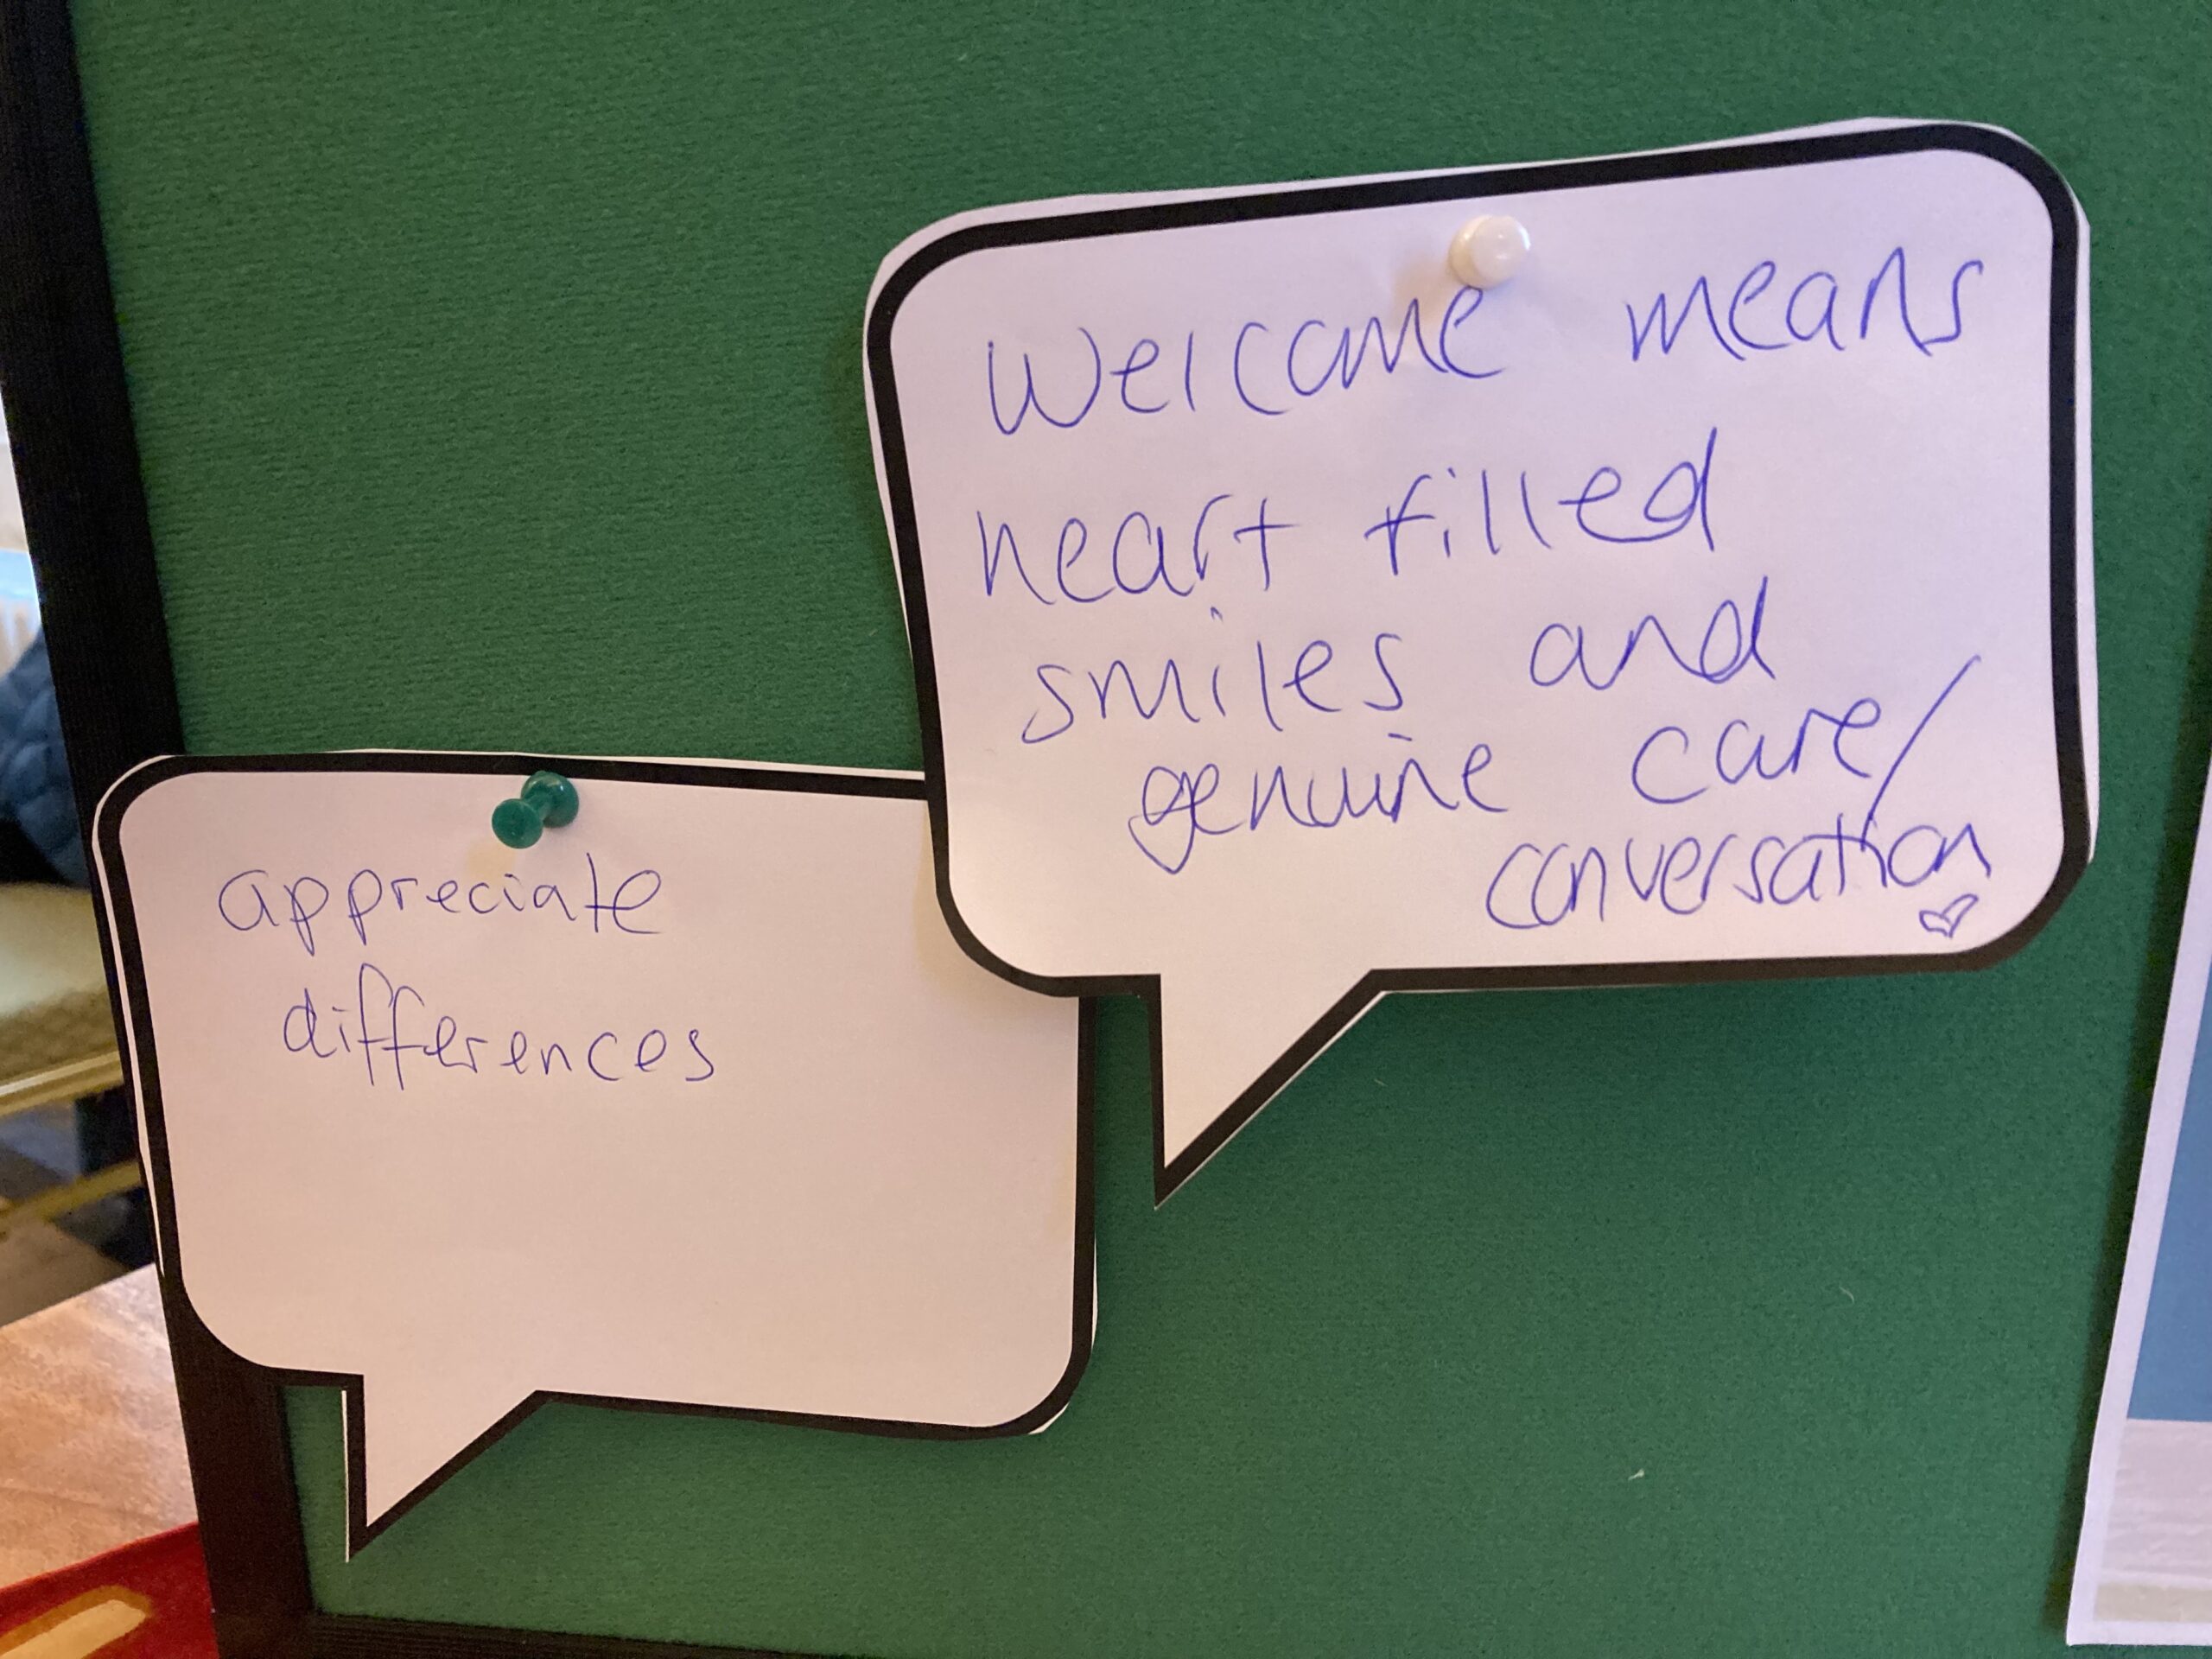 Welcome means
heart filled
smiles and
genuine care/
conversation
appreciate
differences